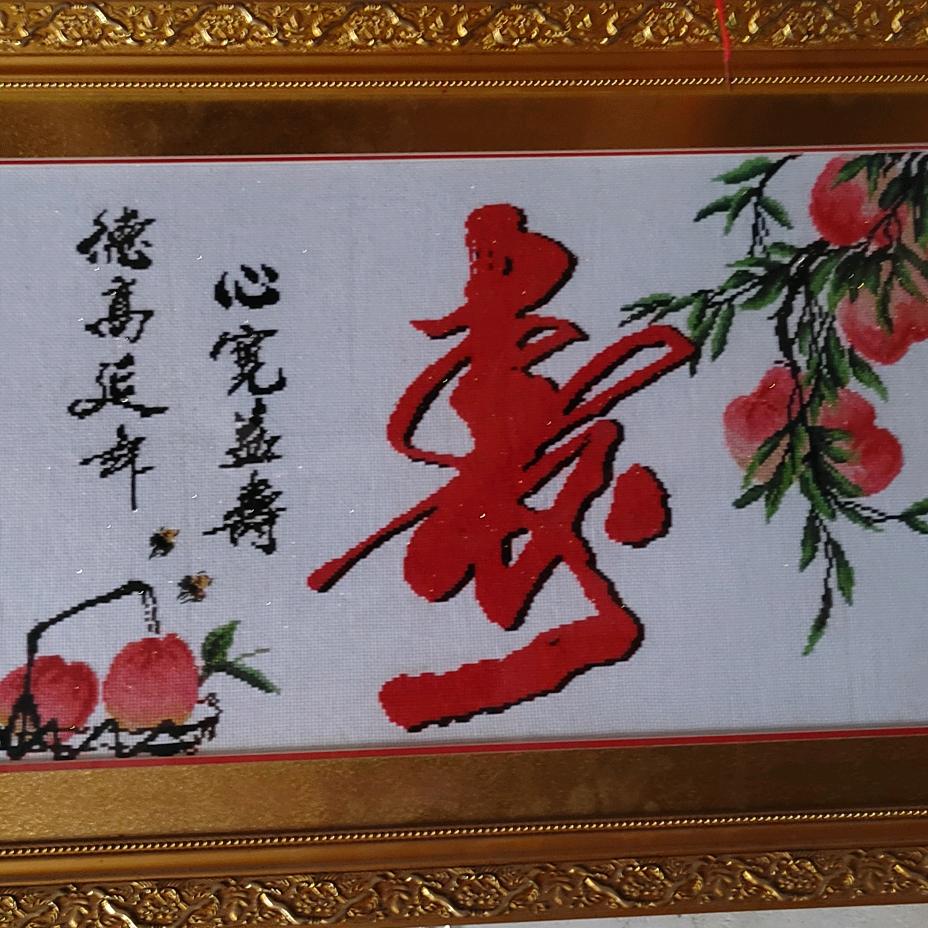 寿
心寬益壽
德高延年